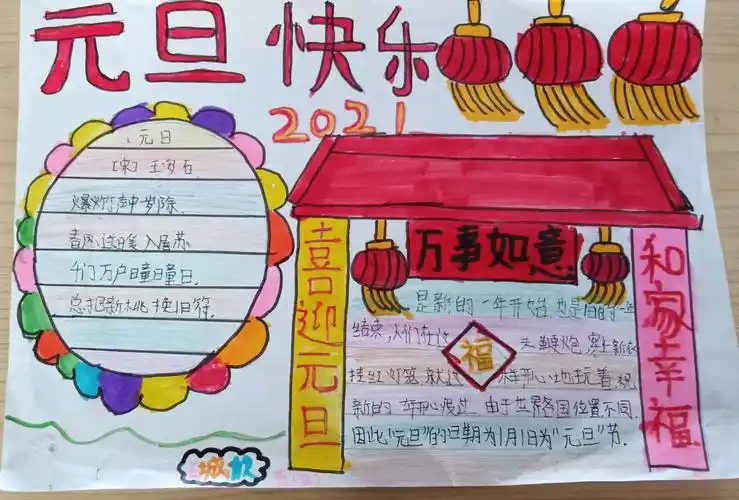 元旦快乐
2021
元日
[宋] 王安石
爆炸声中一岁除.
春风送日笔入屠苏
千门万户日童日童日.
总把新桃换旧符.
万事如意
喜迎元旦
和家幸福
福
是新的一年开始,也是旧的一年
结束,人们在这天鞭炮,穿上新衣
挂红灯笼就这样开心地玩着祝
新的一年开心度过.由于世界各国位置不同.
因此"元旦"的日期为1月1日为"元旦"节.